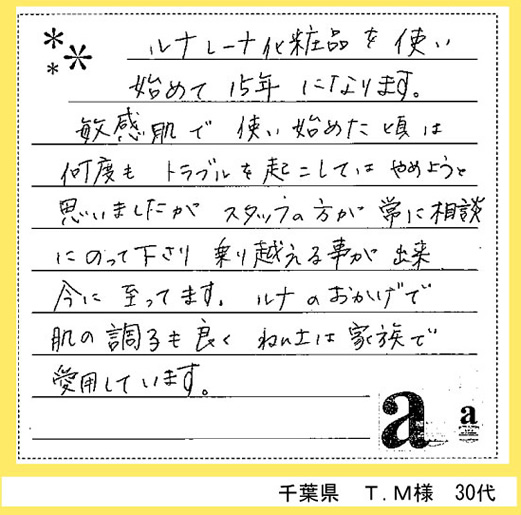 ルナレーナ化粧品を使い
始めて15年になります。
敏感肌で使い始めた頃は
何度もトラブルを起こしてはやめようと
思いましたがスタッフの方が常に相談
にのって下さり乗り越える事が出来
今に至ってます。ルナのおかげで
肌の調子も良くねん土は家族で
愛用しています。
a
a
千葉県　T.M様　30代